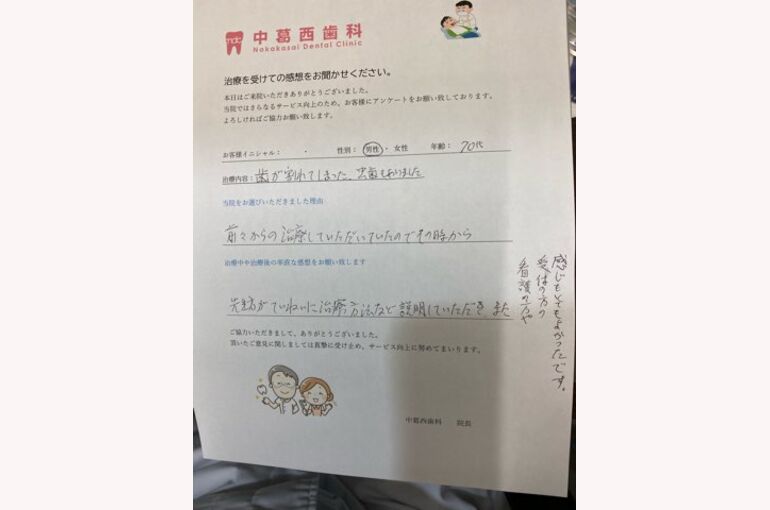 中葛西歯科
Nakakasai Dental Clinic
治療を受けての感想をお聞かせください。
本日はご来院いただきありがとうございました。
当院ではさらなるサービス向上のため、お客様にアンケートをお願い致しております。
よろしければご協力お願い致します。
お客様イニシャル： ・ 性別： 男性 ・ 女性 年齢： 70代
治療内容：歯が割れてしまった、虫歯もありました
当院をお選びいただきました理由
前々からの治療していただいていたのでその時から
治療中や治療後の率直な感想をお願い致します
先生方がていねいに治療方法など説明していただき また
看護の方や
受付の方の
感じもとてもよかったです。
ご協力いただきまして、ありがとうございました。
頂いたご意見に関しましては真摯に受け止め、サービス向上に努めてまいります。
中葛西歯科 院長